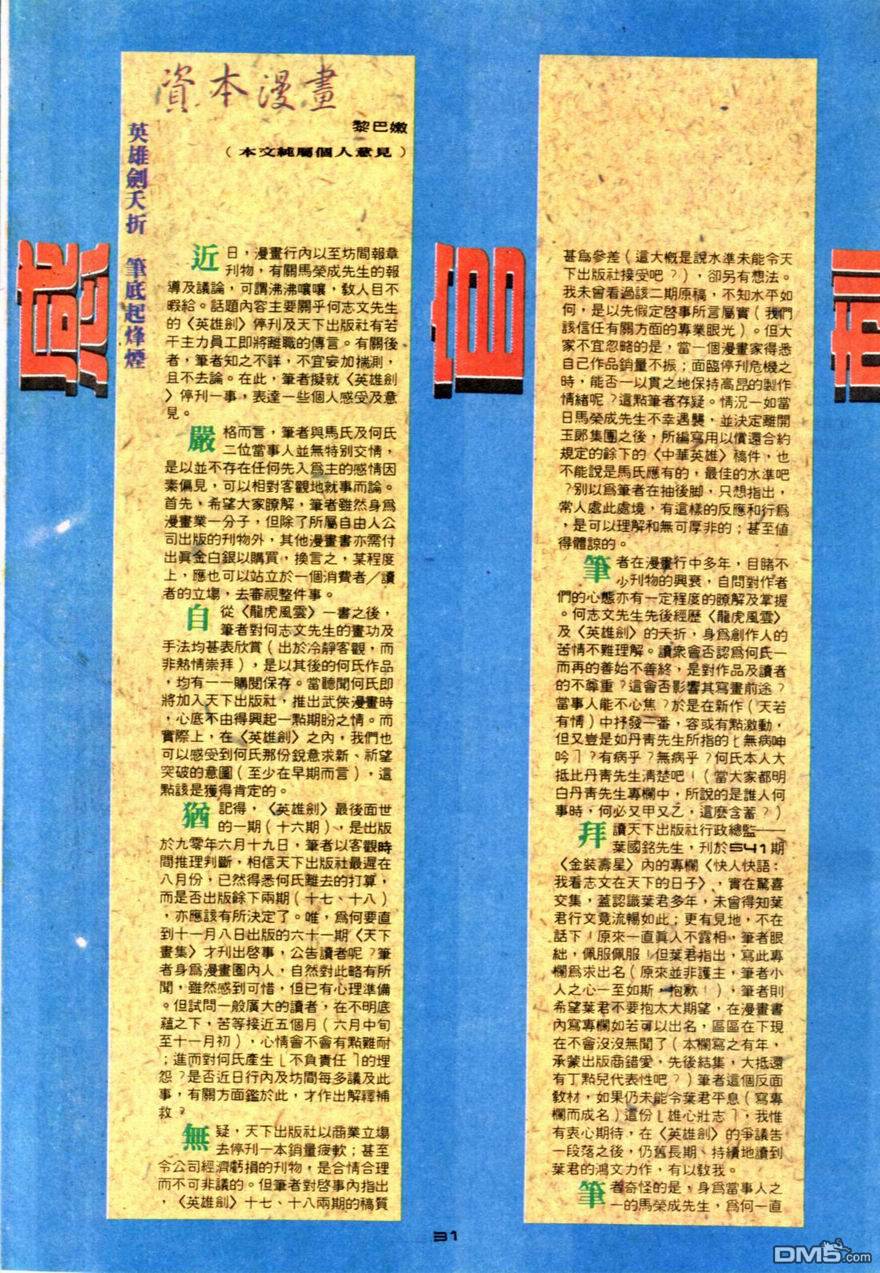 資本漫畫
黎巴嫩
（本文純屬個人意見）
英雄劍夭折　筆底起烽煙
近日，漫畫行內以至坊間報章
刊物，有關馬榮成先生的報
導及議論，可謂沸沸嚷嚷，敎人目不
暇給。話題內容主要關乎何志文先生
的〈英雄劍〉停刊及天下出版社有若
干主力員工即將離職的傳言。有關後
者，筆者知之不詳，不宜妄加揣測，
且不去論。在此，筆者擬就〈英雄劍
〉停刊一事，表達一些個人感受及意
見。
嚴格而言，筆者與馬氏及何氏
二位當事人並無特別交情，
是以並不存在任何先入爲主的感情因
素偏見，可以相對客觀地就事而論。
首先，希望大家瞭解，筆者雖然身爲
漫畫業一分子，但除了所屬自由人公
司出版的刊物外，其他漫畫書亦需付
出眞金白銀以購買，換言之，某程度
上，應也可以站立於一個消費者／讀
者的立場，去審視整件事。
自從〈龍虎風雲〉一書之後，
筆者對何志文先生的畫功及
手法均甚表欣賞（出於冷靜客觀，而
非熱情崇拜），是以其後的何氏作品
，均有一一購閱保存。當聽聞何氏即
將加入天下出版社，推出武俠漫畫時
，心底不由得興起一點期盼之情。而
實際上，在〈英雄劍〉之內，我們也
可以感受到何氏那份銳意求新、祈望
突破的意圖（至少在早期而言），這
點該是獲得肯定的。
猶記得，〈英雄劍〉最後面世
的一期（十六期），是出版
於九零年六月十九日，筆者以客觀時
間推理判斷，相信天下出版社最遲在
八月份，已然得悉何氏離去的打算，
而是否出版餘下兩期（十七、十八）
，亦應該有所決定了。唯，爲何要直
到十一月八日出版的六十一期〈天下
畫集〉才刊出啓事，公告讀者呢？筆
者身爲漫畫圈內人，自然對此略有所
聞，雖然感到可惜，但已有心理準備
。但試問一般廣大的讀者，在不明底
蘊之下，苦等接近五個月（六月中旬
至十一月初），心情會不會有點難耐
；進而對何氏產生﹝不負責任﹞的埋
怨？是否近日行內及坊間每多議及此
事，有關方面鑑於此，才作出解釋補
救？
無疑，天下出版社以商業立場
去停刊一本銷量疲軟；甚至
令公司經濟虧損的刊物，是合情合理
而不可非議的。但筆者對啓事內指出
，〈英雄劍〉十七、十八兩期的稿質
甚爲參差（這大槪是說水準未能令天
下出版社接受吧？），卻另有想法。
我未曾看過該二期原稿，不知水平如
何，是以先假定啓事所言屬實（我們
該信任有關方面的專業眼光）。但大
家不宜忽略的是，當一個漫畫家得悉
自己作品銷量不振；面臨停刊危機之
時，能否一以貫之地保持高昂的製作
情緒呢？這點筆者存疑。情況一如當
日馬榮成先生不幸遇襲，並決定離開
玉郎集團之後，所編寫用以償還合約
規定的餘下的〈中華英雄〉稿件，也
不能說是馬氏應有的，最佳的水準吧
？別以爲筆者在抽後脚，只想指出，
常人處此處境，有這樣的反應和行爲
，是可以理解和無可厚非的；甚至値
得體諒的。
筆者在漫畫行中多年，目睹不
少刊物的興衰，自問對作者
們的心態亦有一定程度的瞭解及掌握
。何志文先生先後經歷〈龍虎風雲〉
及〈英雄劍〉的夭折，身爲創作人的
苦情不難理解。讀衆會否認爲何氏一
而再的善始不善終，是對作品及讀者
的不尊重？這會否影響其寫畫前途？
當事人能不心焦？於是在新作（天若
有情）中抒發一番，容或有點激動，
但又豈是如丹靑先生所指的﹝無病呻
吟﹞？有病乎？無病乎？何氏本人大
抵比丹靑先生淸楚吧！（當大家都明
白丹靑先生專欄中，所說的是誰人何
事時，何必又甲又乙，這麼含蓄？）
拜讀天下出版社行政總監——
葉國銘先生，刊於541期
〈金裝壽星〉內的專欄〈快人快語：
我看志文在天下的日子〉，實在驚喜
交集，蓋認識葉君多年，未曾得知葉
君行文竟流暢如此；更有見地，不在
話下！原來一直眞人不露相，筆者眼
絀，佩服佩服！但葉君指出，寫此專
欄爲求出名（原來並非護主，筆者小
人之心一至如斯，抱歉！），筆者則
希望葉君不要抱太大期望，在漫畫書
內寫專欄如若可以出名，區區在下現
在不會沒沒無聞了（本欄寫之有年，
承蒙出版商錯愛，先後結集，大抵還
有丁點兒代表性吧？）筆者這個反面
敎材，如果仍未能令葉君平息（寫專
欄而成名）這份﹝雄心壯志﹞，我惟
有衷心期待，在〈英雄劍〉的爭議告
一段落之後，仍舊長期、持續地讀到
葉君的鴻文力作，有以敎我。
筆者奇怪的是，身爲當事人之
一的馬榮成先生，爲何一直
感
官
31
DM5.com